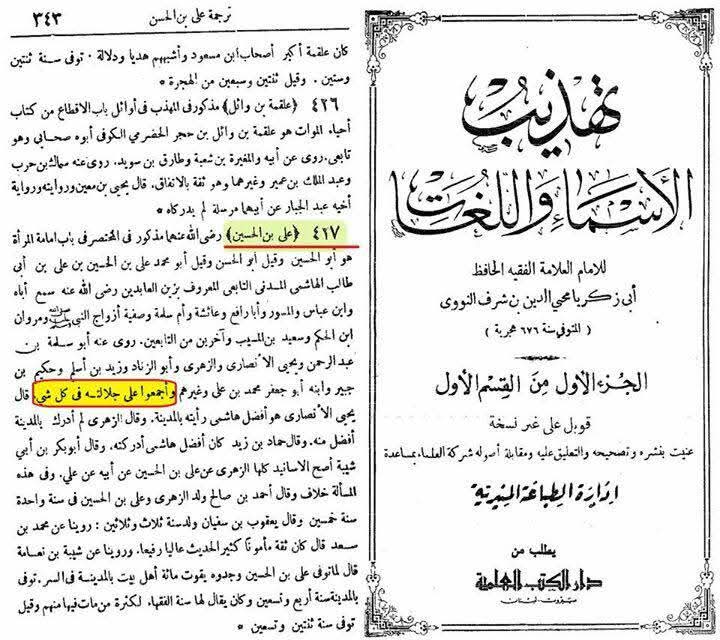 ترجمة على بن الحسن
٣٤٣
كان علقمة أكبر أصحاب ابن مسعود وأشبههم هديا ودلالة ٠ توفى سنة ثنتين
وستين . وقيل ثنتين وسبعين من الهجرة *
٤٢٦ ﴿علقمة بن وائل﴾ مذكور فى المهذب فى أوائل باب الاقطاع من كتاب
أحياء الموات هو علقمة بن وائل بن حجر الحضرمي الكوفى أبوه صحابي وهو
تابعى . روى عن أبيه والمغيرة بن شعبة وطارق بن سويد . روى عنه سماك بن حرب
وعبد الملك بن عمير وغيرهما وهو ثقة بالاتفاق . قال يحيى بن معين وروايته ورواية
أخيه عبد الجبار عن أبيهما مرسلة لم يدركاه *
٤٢٧ ﴿على بن الحسين﴾ رضى الله عنهما مذكور فى المختصر فى باب امامة المرأة
هو أبو الحسين وقيل أبو الحسن وقيل أبو محمد على بن الحسين بن على بن أبى
طالب الهاشمى المدنى التابعى المعروف بزين العابدين رضى الله عنه سمع أباه
وابن عباس والمسور وأبا رافع وعائشة وأم سلمة وصفية أزواج النبى ﷺ ومروان
ابن الحكم وسعيد بن المسيب وآخرين من التابعين . روى عنه أبو سلمة بن
عبد الرحمن ويحيى الأنصارى والزهرى وأبو الزناد وزيد بن أسلم وحكيم بن
جبير وابنه أبو جعفر محمد بن على وغيرهم وأجمعوا على جلالته فى كل شى . قال
يحيى الأنصارى هو أفضل هاشمى رأيته بالمدينة . وقال الزهرى لم أدرك بالمدينة
أفضل منه . وقال حماد بن زيد كان أفضل هاشمى أدركته . وقال أبو بكر بن أبي
شيبة أصح الاسانيد كلها الزهرى عن على بن الحسين عن أبيه عن علي . وفى هذه
المسألة خلاف وقال أحمد بن صالح ولد الزهرى وعلى بن الحسين فى سنة واحدة
سنة خمسين وقال يعقوب بن سفيان ولد سنة ثلاث وثلاثين : روينا عن محمد بن
سعد قال كان ثقة مأمونا كثير الحديث عاليا رفيعا . وروينا عن شيبة بن نعامة
قال لما توفى على بن الحسين وجدوه يقوت مائة أهل بيت بالمدينة فى السر . توفى
بالمدينة سنة أربع وتسعين وكان يقال لها سنة الفقهاء لكثرة من مات فيها منهم وقيل
توفى سنة ثنتين وتسعين *
تهذيب
الأسماء واللغات
للامام العلامة الفقيه الحافظ
أبى زكريا محيي الدين بن شرف النووى
( المتوفى سنة ٦٧٦ هجرية )
الجزء الأول من القسم الأول
قوبل على غير نسخة
عنيت بنشره وتصحيحه والتعليق عليه ومقابلة أصوله شركة العلماء بمساعدة
إدارة الطباعة المنيرية
يطلب من
دار الكتب العلمية
بيروت - لبنان